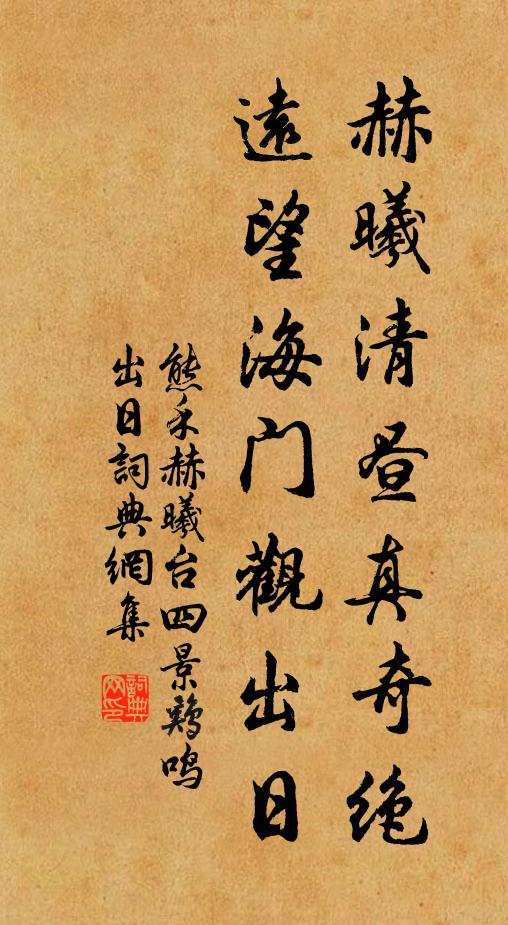 赫曦清昼真奇绝
遠望海门觀出日
熊禾赫曦台四景鷄鸣
出日詞典網集
詞典
网印